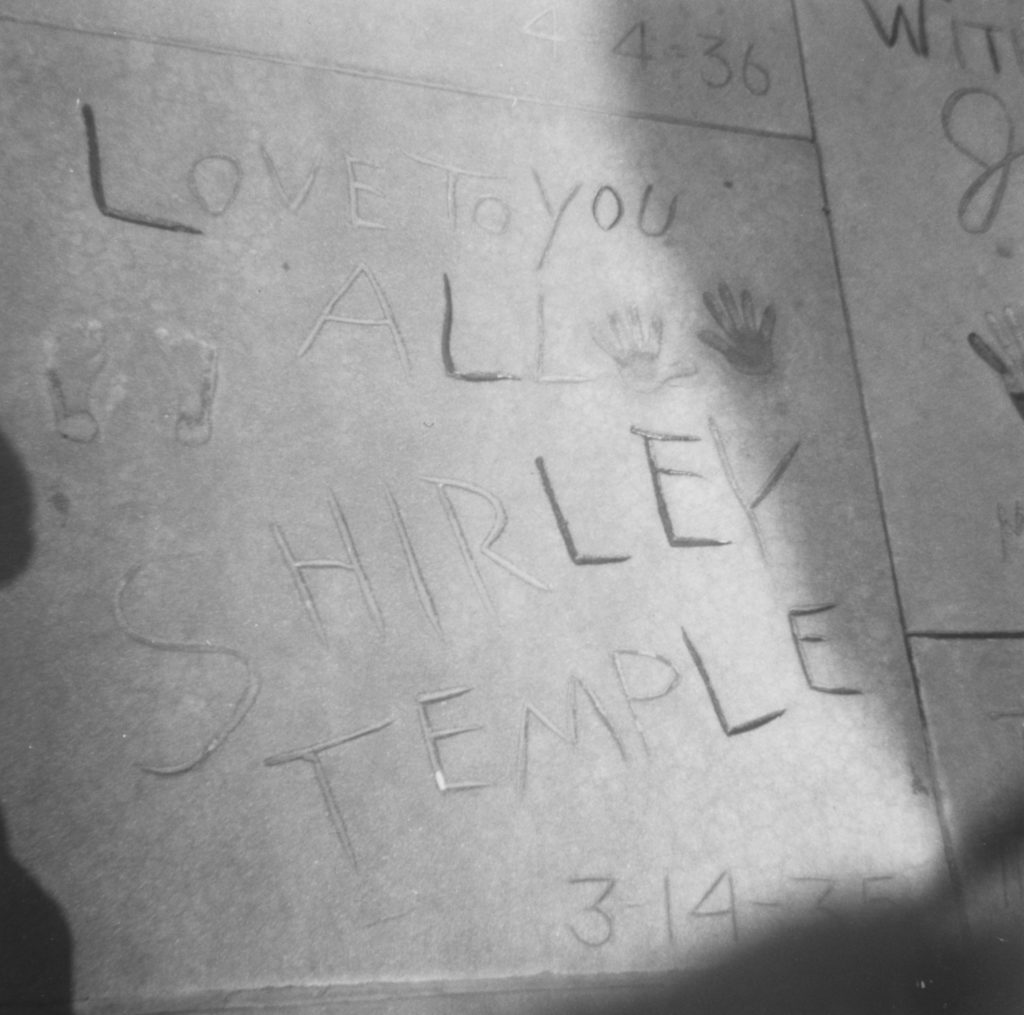 4-36
WITH
LOVE TO YOU
ALL
SHIRLEY
TEMPLE
3-14-35